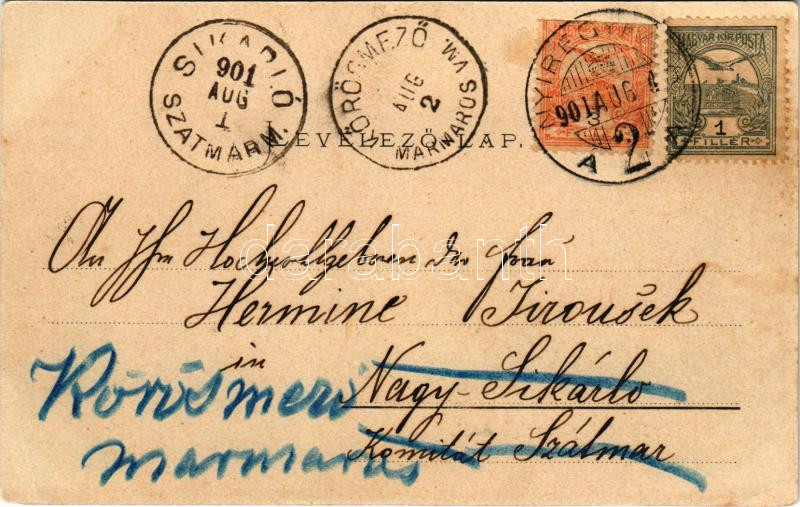 SIKARLÓ
901
AUG
1
SZATMARM.
KÖRÖSMEZŐ VM
AUG
2
MARMAROS
NYIREGYH
901 AUG
A
2
MAGYAR KIR. POSTA
1
FILLÉR
LEVELEZŐ-LAP.
An Ihre Hochwohlgeboren der Frau
Hermine Jiroušek
in
Nagy-Sikárlo
Komitát Szátmar
Körösmező
Marmaros
darabanth